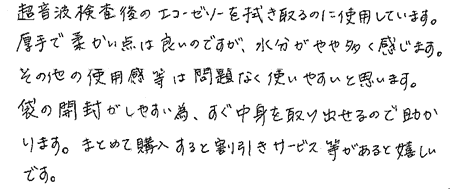 超音波検査後のエコーゼリーを拭き取るのに使用しています。
厚手で柔かい点は良いのですが、水分がやや多く感じます。
その他の使用感等は問題なく使いやすいと思います。
袋の開封がしやすい為、すぐ中身を取り出せるので助か
ります。まとめて購入すると割引きサービス等があると嬉しい
です。